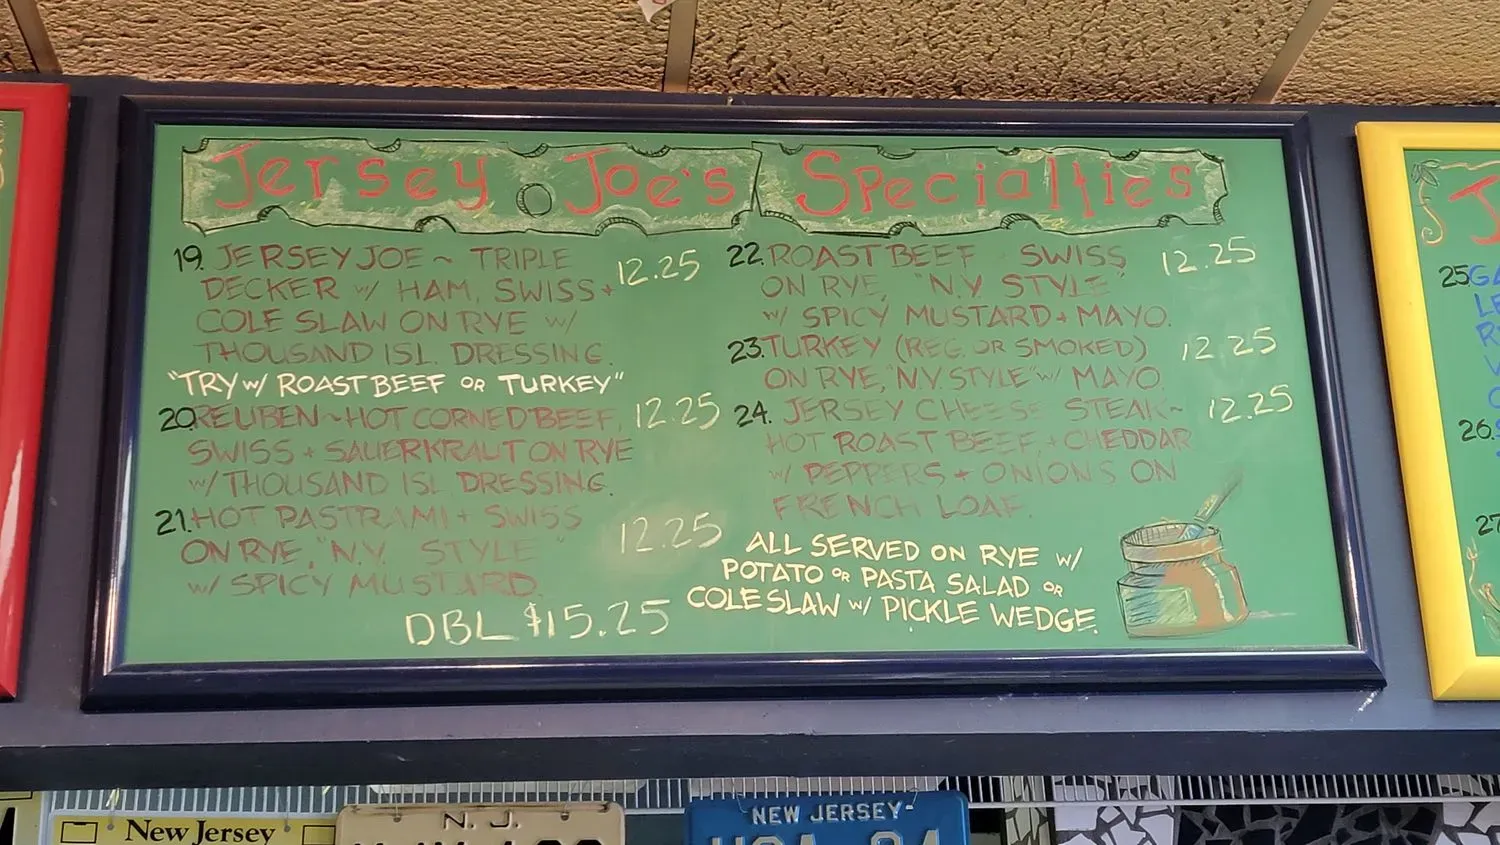 Jersey Joe's Specialties
19. JERSEY JOE ~ TRIPLE 12.25
DECKER w/ HAM, SWISS +
COLE SLAW ON RYE w/
THOUSAND ISL. DRESSING.
"TRY w/ ROAST BEEF OR TURKEY"
20. REUBEN ~ HOT CORNED BEEF, 12.25
SWISS + SAUERKRAUT ON RYE
w/ THOUSAND ISL. DRESSING.
21. HOT PASTRAMI + SWISS 12.25
ON RYE, "N.Y. STYLE"
w/ SPICY MUSTARD.
DBL $15.25
22. ROAST BEEF SWISS 12.25
ON RYE, "N.Y STYLE"
w/ SPICY MUSTARD + MAYO.
23. TURKEY (REG. OR SMOKED) 12 25
ON RYE, "N.Y. STYLE" w/ MAYO.
24. JERSEY CHEESE STEAK ~ 12.25
HOT ROAST BEEF, + CHEDDAR
w/ PEPPERS + ONIONS ON
FRENCH LOAF.
ALL SERVED ON RYE w/
POTATO OR PASTA SALAD OR
COLE SLAW w/ PICKLE WEDGE.
J
25
26.
27
New Jersey
N. J.
NEW JERSEY